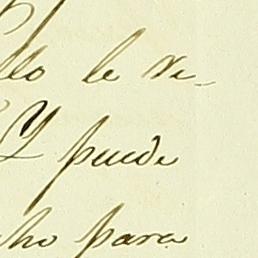 llo le ve-
Y puede
cho para